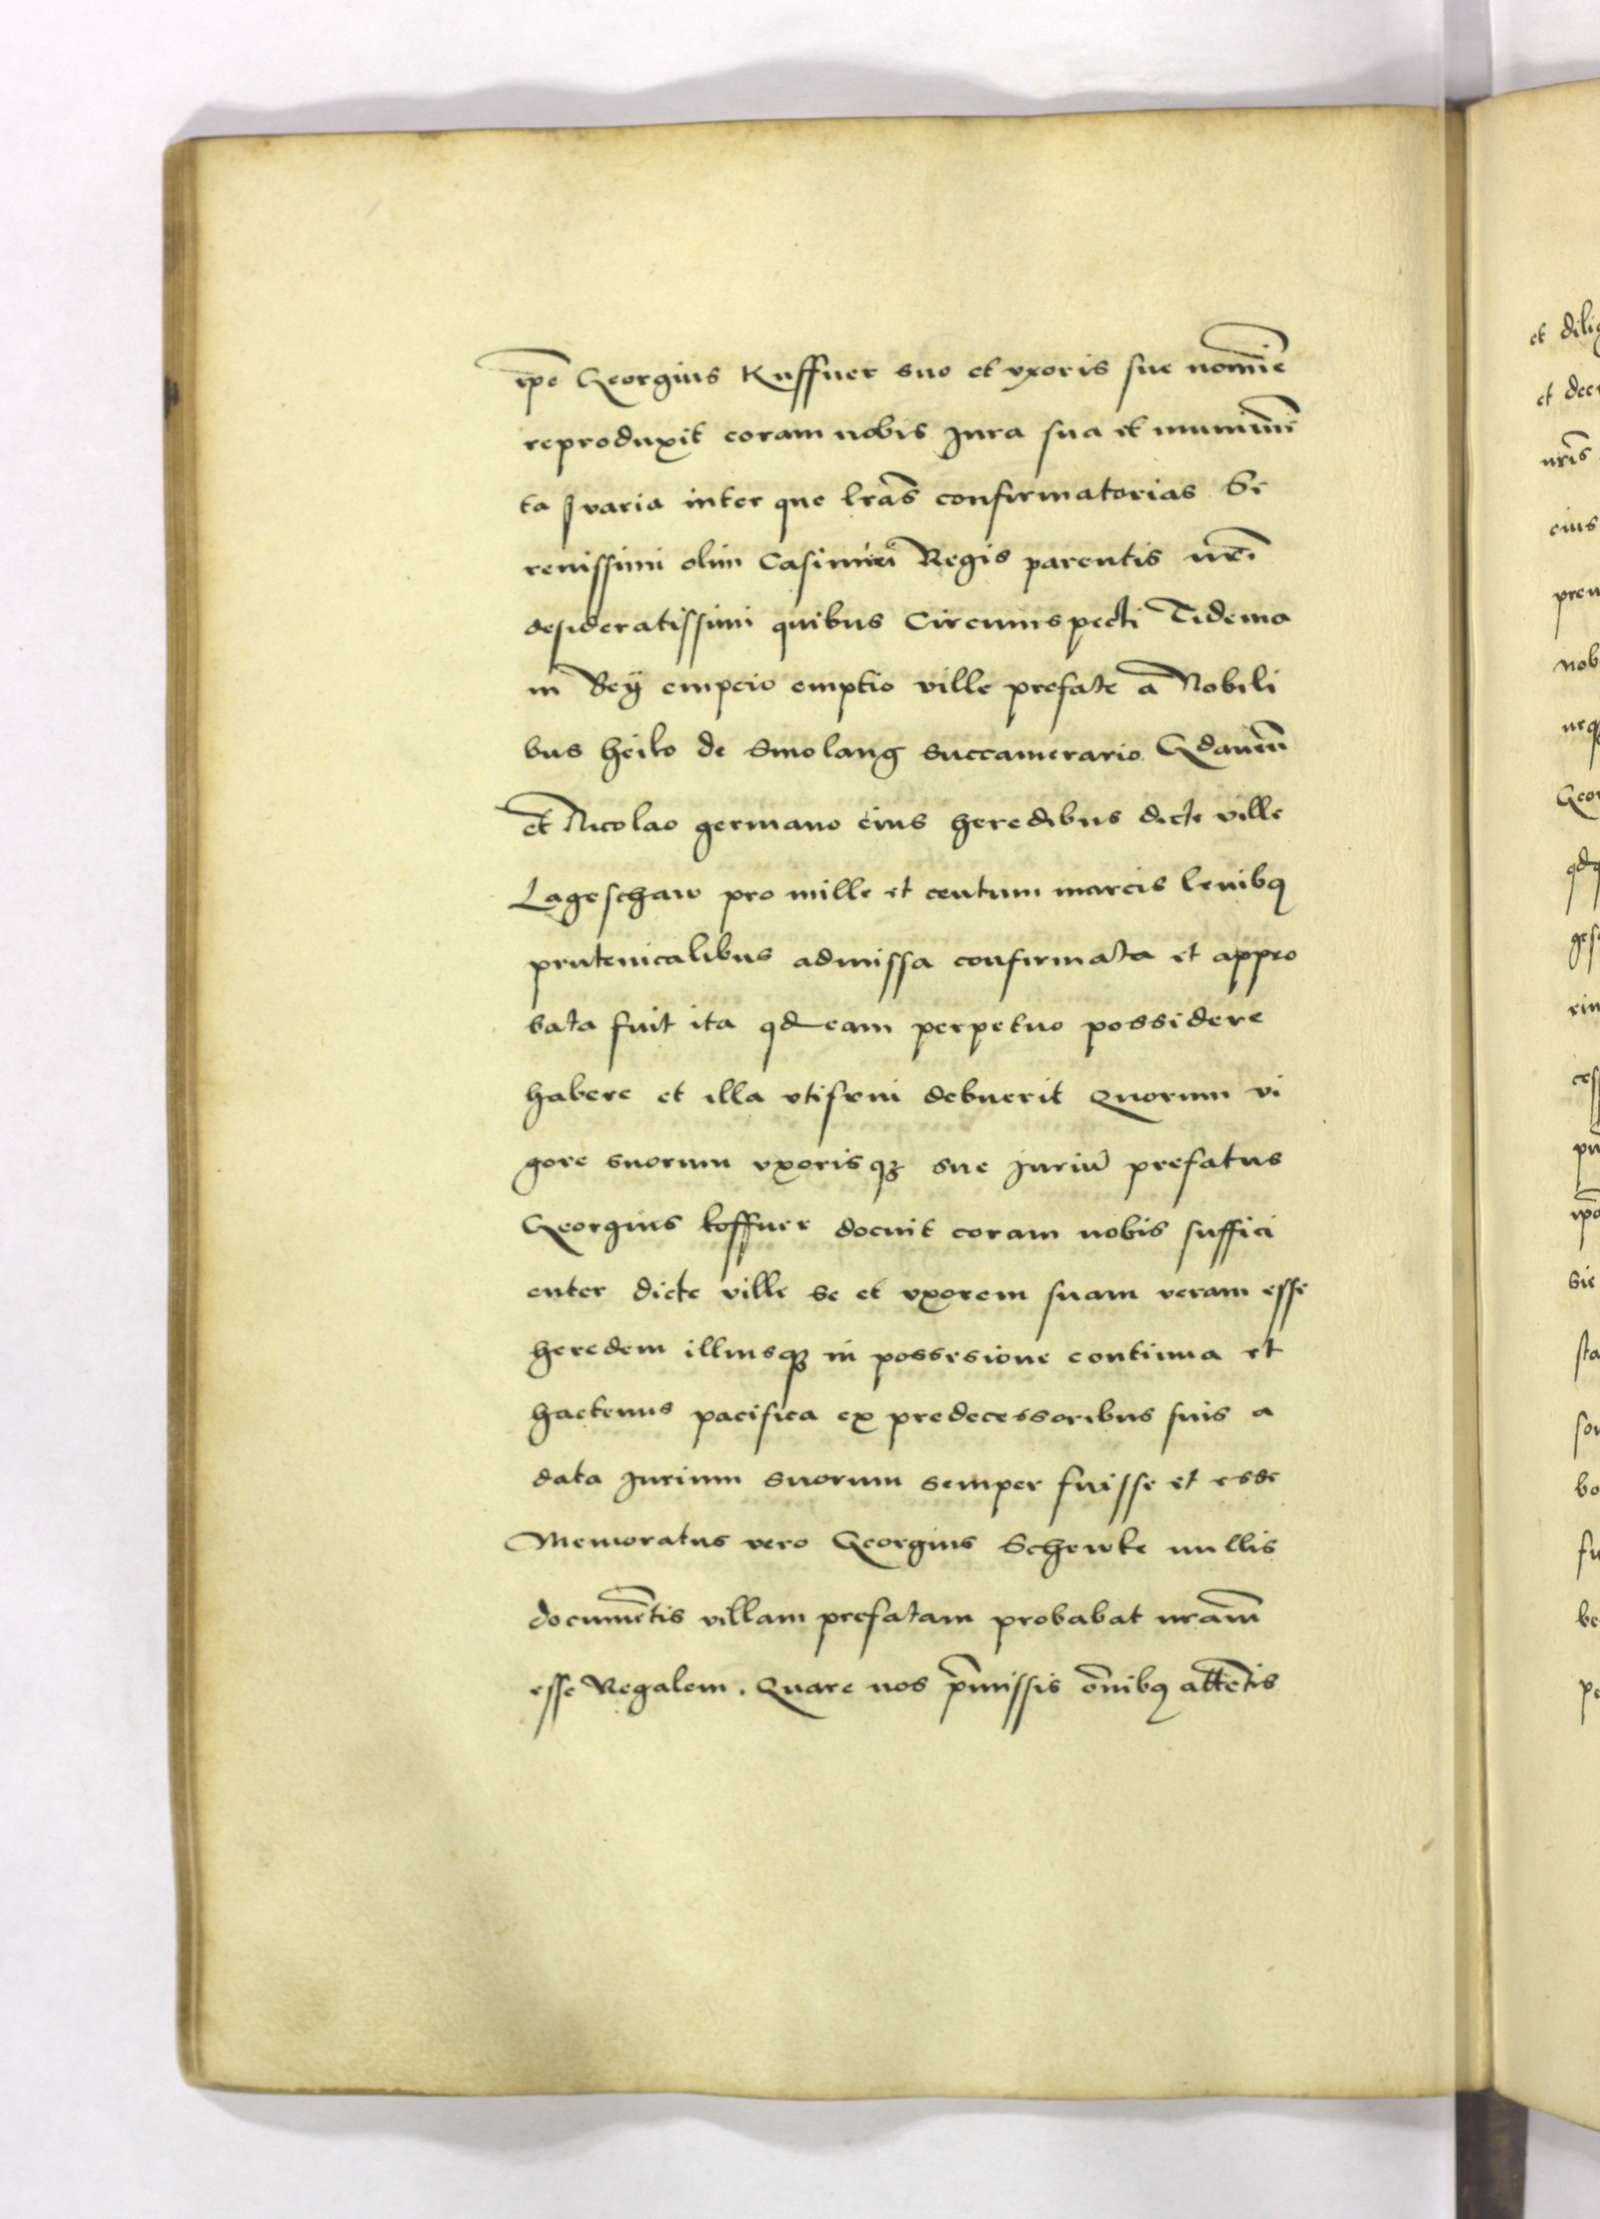 ip̄e Georgius Kuffner suo et vxoris sue nomīe
reproduxit coram nobis Jura sua et munimē
ta varia inter que lrās confirmatorias Se
renissimi olim Casimiri Regis parentis nrī
desideratissimi quibus Circumspecti Tidema
ni Bey empcio emptio ville prefate a Nobili
bus heiko de Smolang succamerario Gdanēn
et Nicolao germano eius heredibus dicte ville
Lageschaw pro mille et centum marcis leuibꝯ
prutenicalibus admissa confirmata et appro
bata fuit ita qd eam perpetuo possidere
habere et illa vtifrui debuerit Quorum vi
gore suorum vxorisqꝫ sue Juriū prefatus
Georgius koffner docuit coram nobis suffici
enter dicte ville se et vxorem suam veram esse
heredem illiusqꝫ in possesione continua et
hactenus pacifica ex predecessoribus suis a
data Jurium suorum semper fuisse et esse
Memoratus vero Georgius Schewke nullis
documētis villam prefatam probabat nrām
esse Regalem. Quare nos p̄missis ōnibꝯ attētis
et dili
et dec
nrīs
eius
nob
Geor